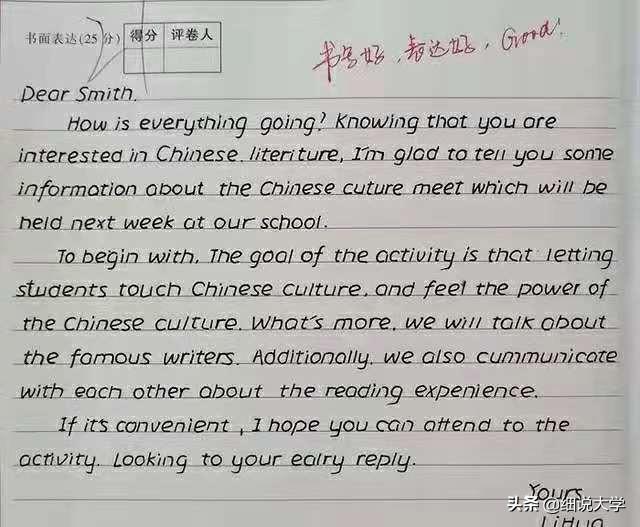 书面表达(25分) 得分 评卷人
书写好,表达好,Good!
Dear Smith.
How is everything going? Knowing that you are
interested in Chinese literiture, I'm glad to tell you some
information about the Chinese cuture meet which will be
held next week at our school.
To begin with, The goal of the activity is that letting
students touch Chinese culture, and feel the power of
the Chinese culture. What's more, we will talk about
the famous writers. Additionally, we also cummunicate
with each other about the reading expenience.
If it's convenient, I hope you can attend to the
activity. Looking to your ealry reply.
Yours,
LiHua
头条 @细说大学